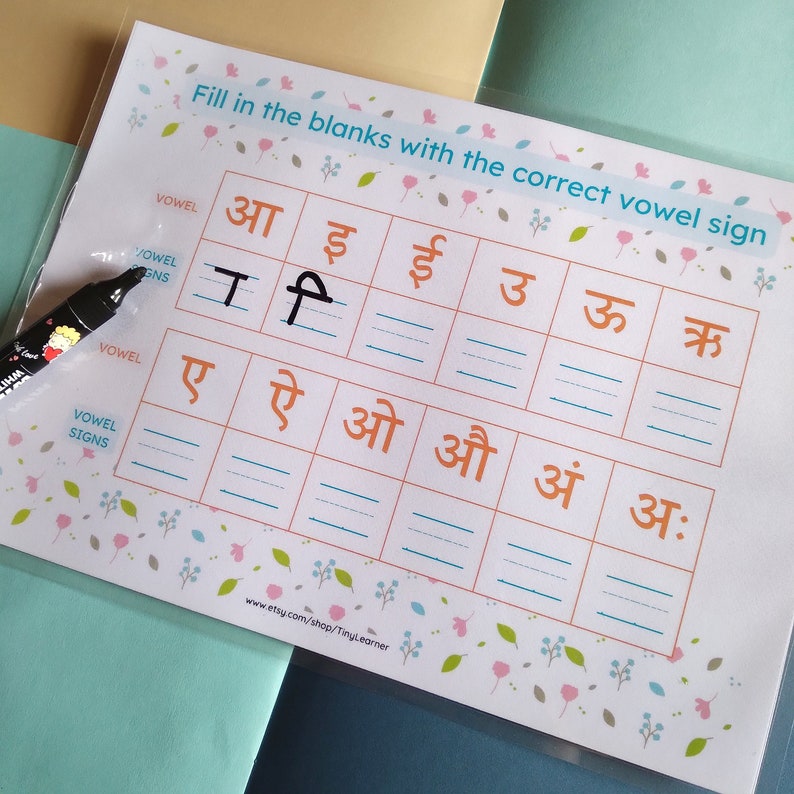 Fill in the blanks with the correct vowel sign
VOWEL आ इ ई उ ऊ ऋ
VOWEL SIGNS ा ि
VOWEL ए ऐ ओ औ अं अः
VOWEL SIGNS
www.etsy.com/shop/TinyLearner